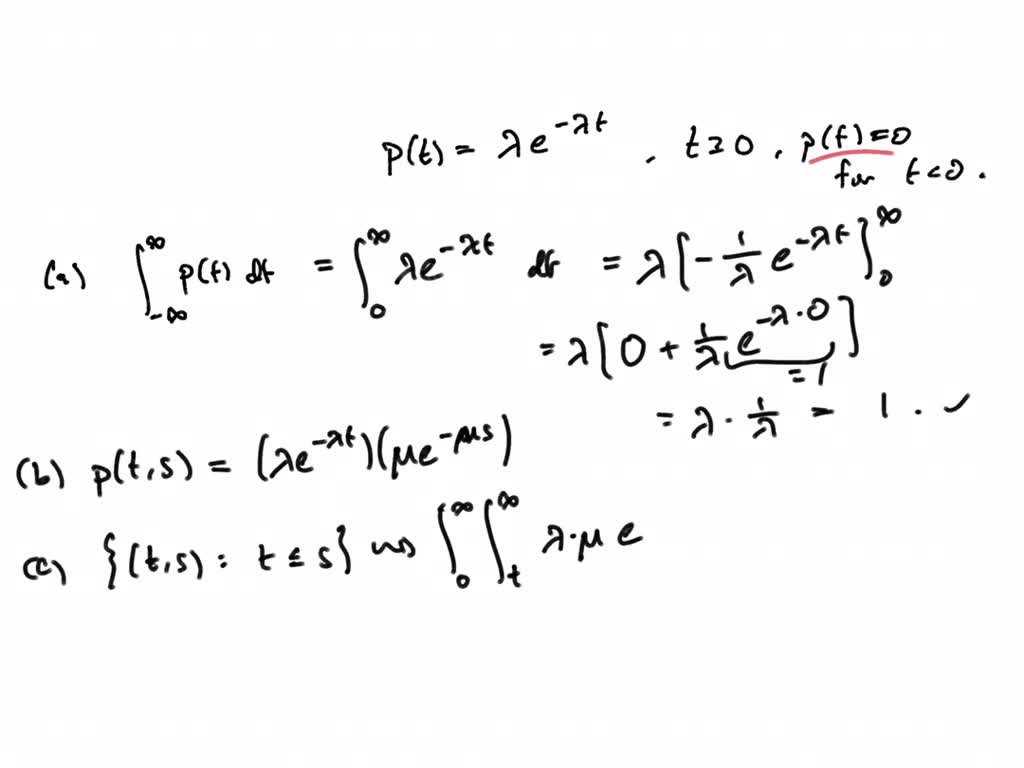 p(t) = λe^{-λt} , t ≥ 0 , p(t) = 0
for t < 0 .
(a) ∫_{-∞}^{∞} p(t) dt = ∫_{0}^{∞} λe^{-λt} dt = λ[-1/λ e^{-λt}]_{0}^{∞}
= λ[0 + 1/λ e^{-λ·0}]
= 1
= λ · 1/λ = 1 . ✓
(b) p(t,s) = (λe^{-λt})(μe^{-μs})
(c) {(t,s) : t ≤ s} ⇝ ∫_{0}^{∞} ∫_{t}^{∞} λ·μ e